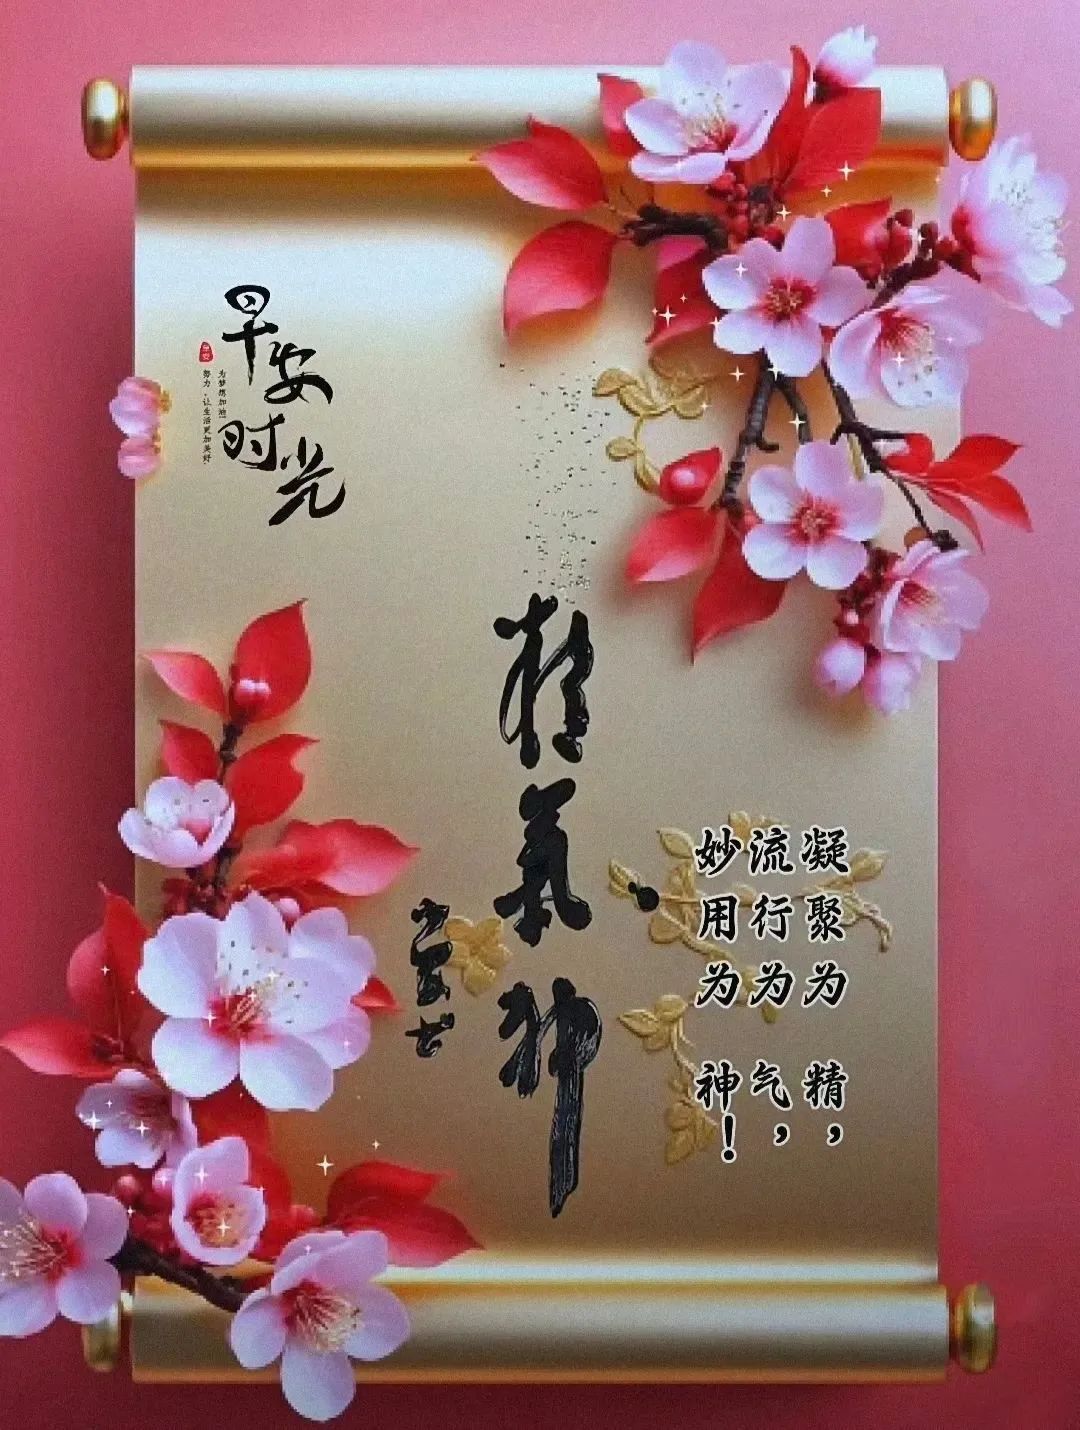 早安
时光
为梦想加油
努力，让生活更加美好
早安
精氣神
凝聚为 精，
流行为 气，
妙用为 神！